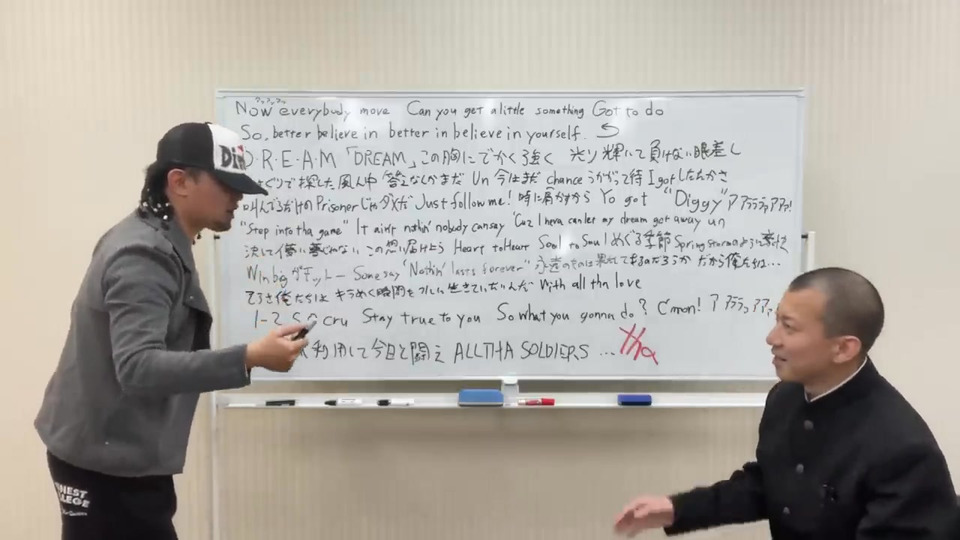 Now everybody move Can you get a little something Got to do
So, better believe in better in believe in yourself.
D・R・E・A・M 「DREAM」この胸にでかく強く 光り輝いて負けない眼差し
で探した風ん中 答えなんかまだ Un 今はまだ chance うかがって待 I got したたかさ
叫んでるだけの Prisoner じゃダメだ Just follow me! 時に肩かすから Yo got "Diggy" アアララァアアァ!
"Step into tha game" It ain't nothin' nobody can say 'Cuz I neva can let my dream got away un
決して この想い届けよう Heart to Heart Soul to Soul めぐる季節 Spring storm のように
Win big ゲキット― Some say "Nothin' lasts forever" 永遠のものは果たしてあるのだろうか だから俺たちは…
俺たちは きらめく瞬間を 生きていたいんだ With all tha love
1-2 cru Stay true to you So what you gonna do? C'mon! ア アララァ アァ
利用して今日と闘え ALL THA SOLDIERS … tha
Din
HONEST
COLLEGE